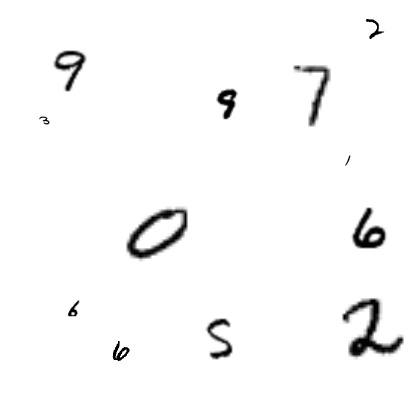 2
9
9 7
3
1
0 6
6
6 5 2